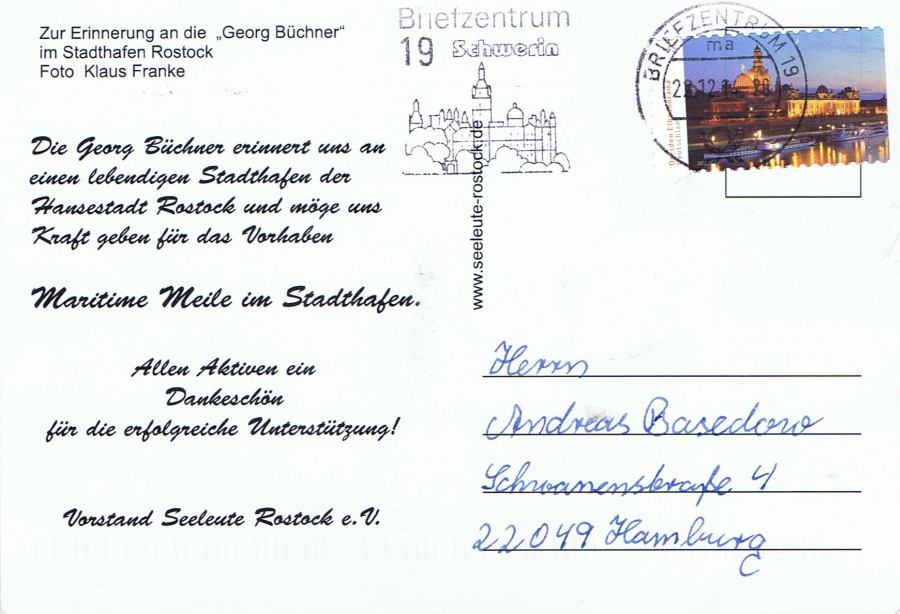 Zur Erinnerung an die „Georg Büchner“
im Stadthafen Rostock
Foto Klaus Franke
Die Georg Büchner erinnert uns an
einen lebendigen Stadthafen der
Hansestadt Rostock und möge uns
Kraft geben für das Vorhaben
Maritime Meile im Stadthafen.
Allen Aktiven ein
Dankeschön
für die erfolgreiche Unterstützung!
Vorstand Seeleute Rostock e.V.
Briefzentrum
19 Schwerin
www.seeleute-rostock.de
BRIEFZENTRUM 19
ma
Deutschland
Herrn
Andreas Basedow
Schwanenstraße 4
22049 Hamburg